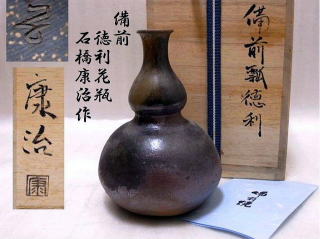 備前
徳利花瓶
石橋康治作
備前瓢徳利
康治
康